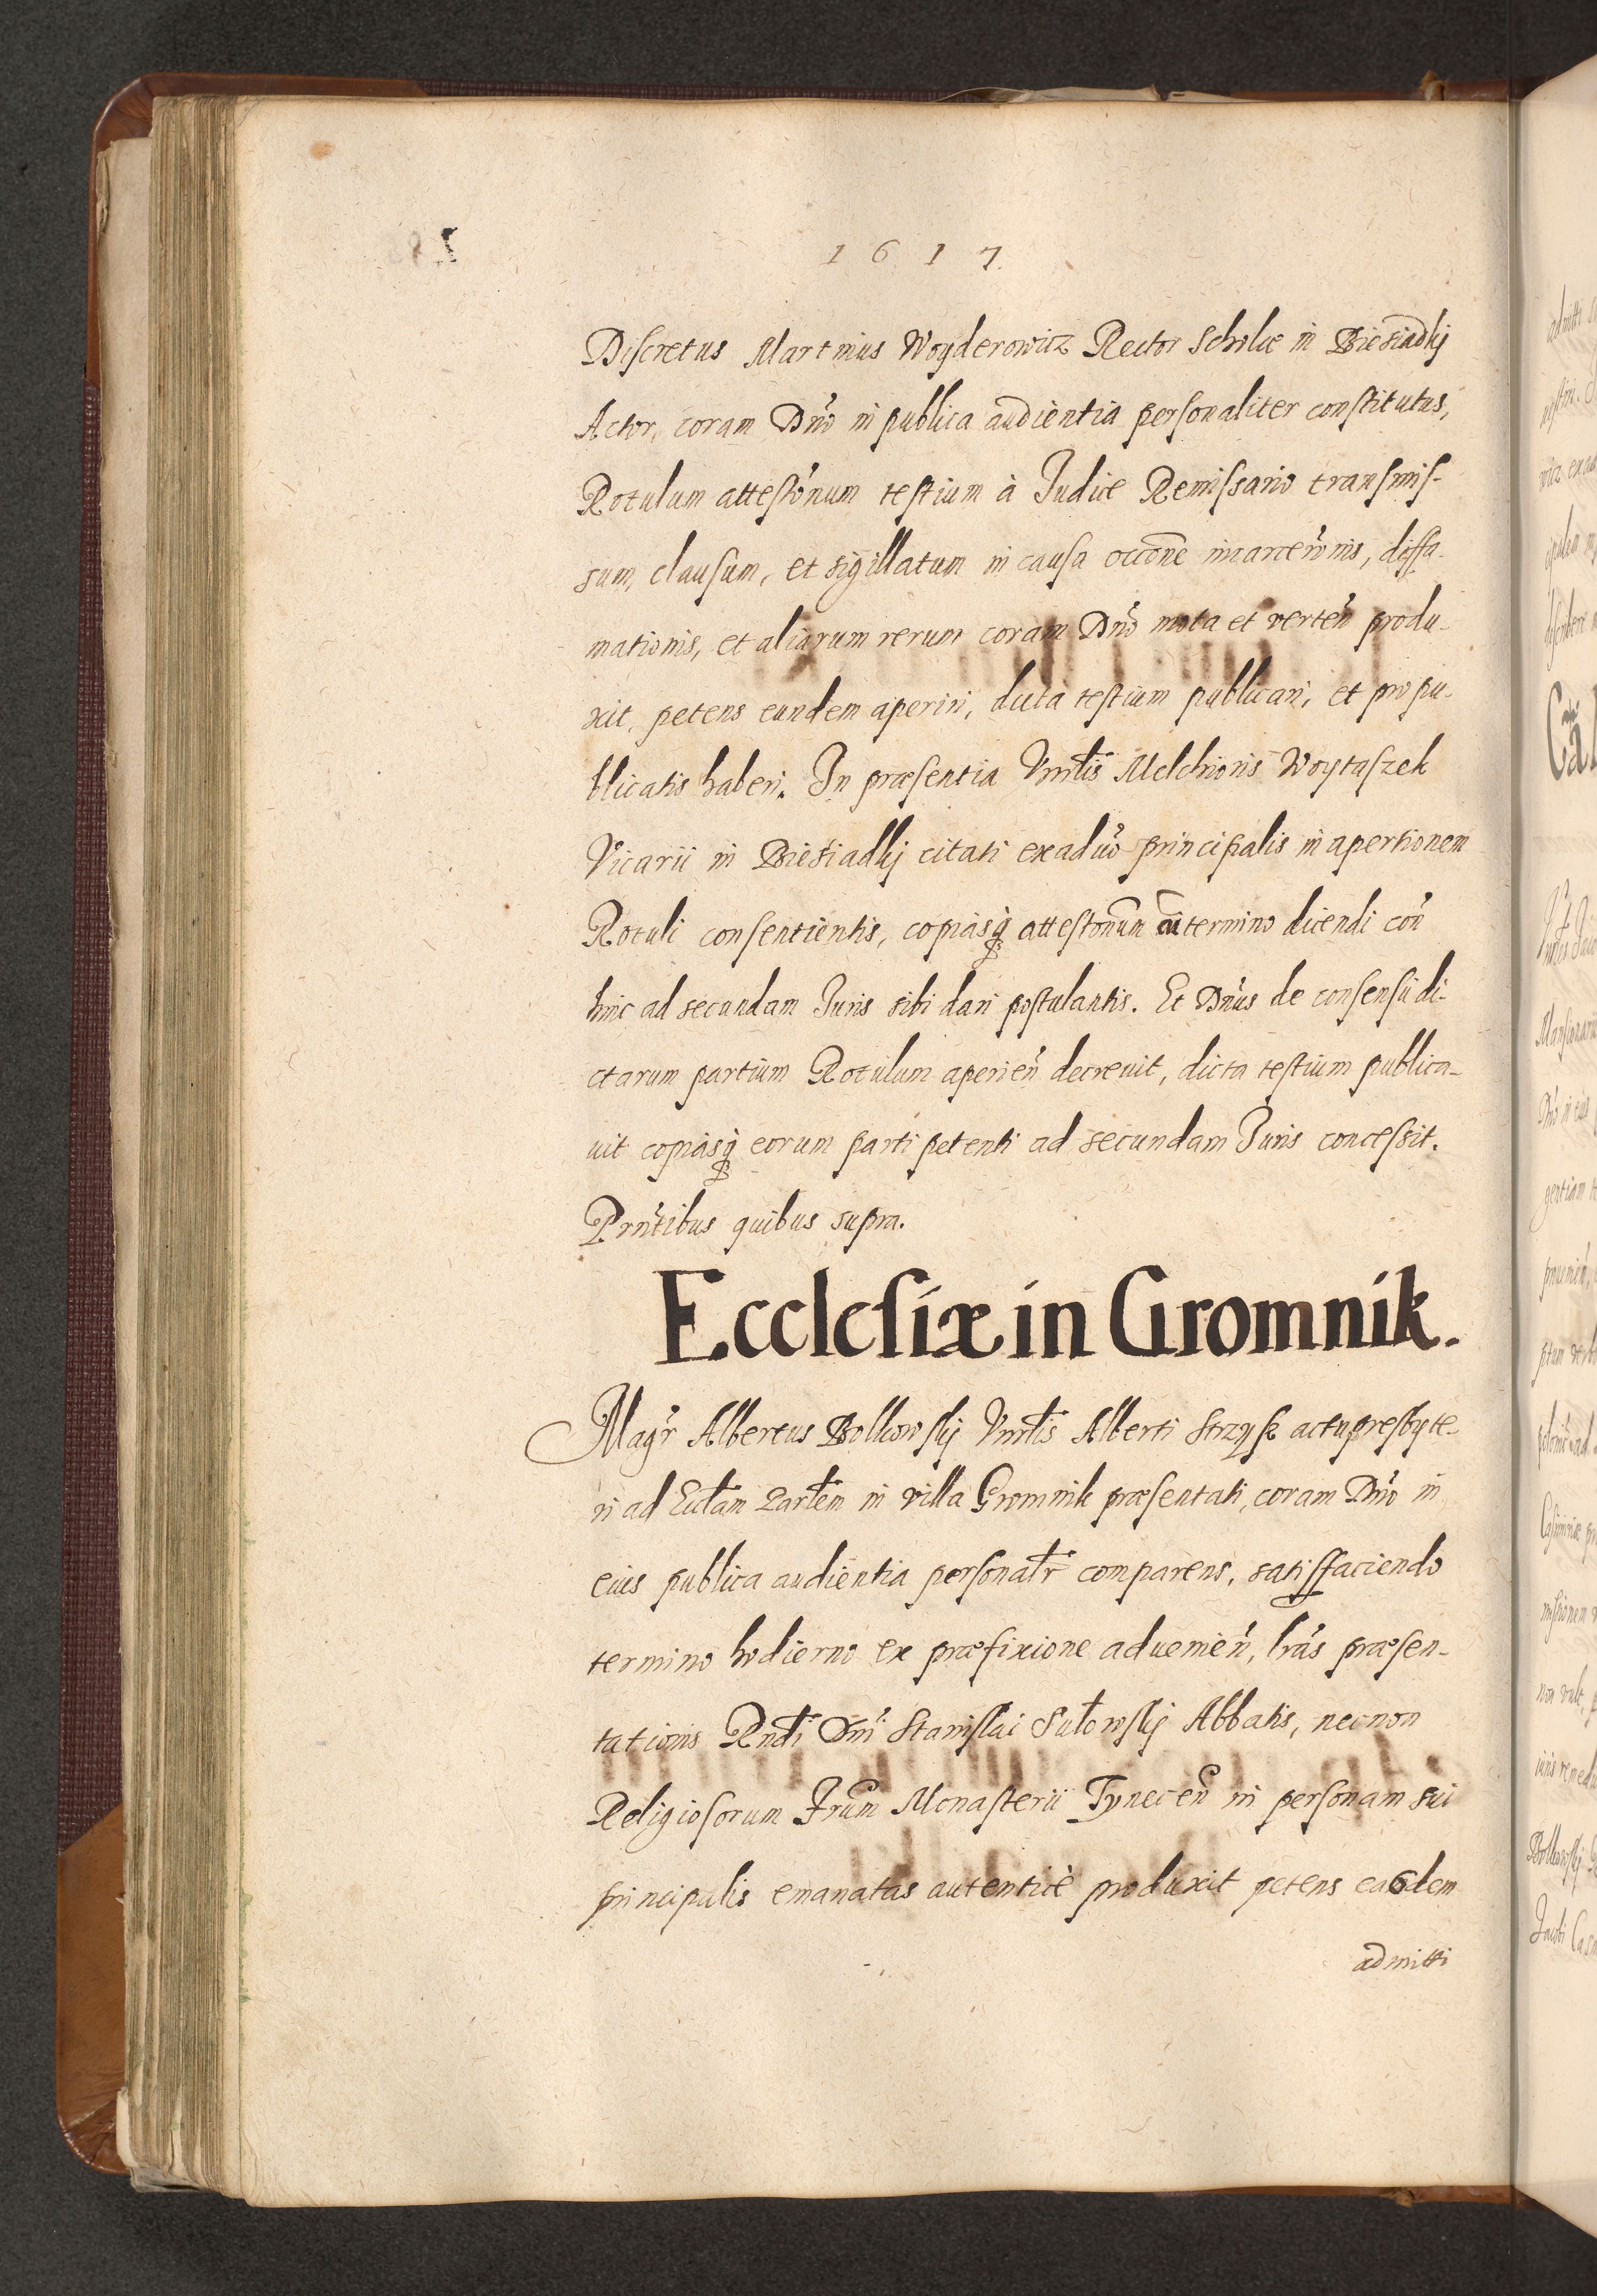 1617
Discretus Martinus Woyderowicz Rector Scholæ in Biesiadkj
Actor, coram Dno in publica audientia personaliter constitutus,
Rotulum attestõnum testium à Judice Remissario transmis-
sum, clausum, et sigillatum in causa occone incarceroñis, diffa-
mationis, et aliarum rerum coram Dno mota et verteñ produ-
xit, petens eundem aperiri, dicta testium publicari, et pro pu-
blicatis haberi. In præsentia Vnrlis Melchioris Woytaszek
Vicarii in Biesiadkj citati ex aduo principalis in apertionem
Rotuli consentientis, copiasq attestonum cu termino dicendi coñ
hinc ad secundam Juris sibi dari postulantis. Et Dnus de consensu di-
ctarum partium Rotulum aperieñ decreuit, dicta testium publica-
uit copiasq eorum parti petenti ad secundam Juris concessit.
Prntibus quibus supra.
Ecclesiæ in Gromnik.
Magr Albertus Bolkowskj Vnrlis Alberti Strzysz actu presbyte-
ri ad Ecclam Parlem in villa Gromnik præsentati, coram Dno in
eius publica audientia personalr comparens, satisffaciendo
termino hodierno ex præfixione adueníeñ, lras præsen-
tationis Rndi Dni Stanislai Sułowskj Abbatis, necnon
Religiosorum Frum Monasterii Tyneceñ in personam sui
principalis emanatas autenticè produxit petens easdem
admitti